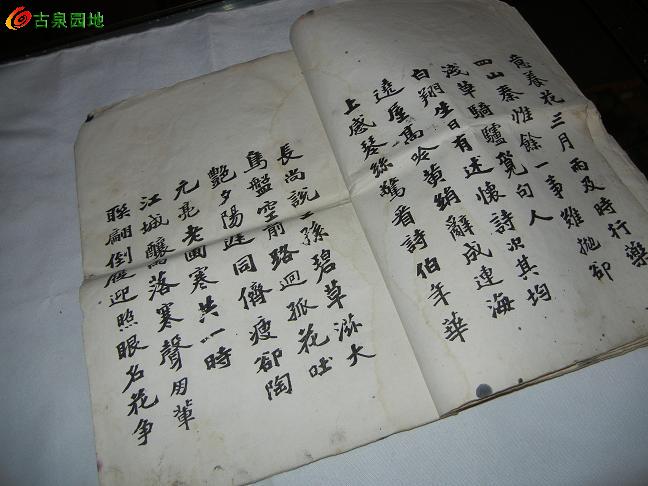 古泉园地
意養花三月雨及時行樂
四山秦惟餘一事難拋卻
淺草騎驢覓句人
白翔生日有述懷詩次其均
遶屋高吟黃絹辭成連海
上感琴絲驚看詩伯年華
長尚說王孫碧草滋大
鳥盤空前路迴孤花吐
艷夕陽遲同儕瘦卻陶
元亮老圃寒共一時
江城釀落寒聲用輩
聯翩倒屣迎照眼名花爭